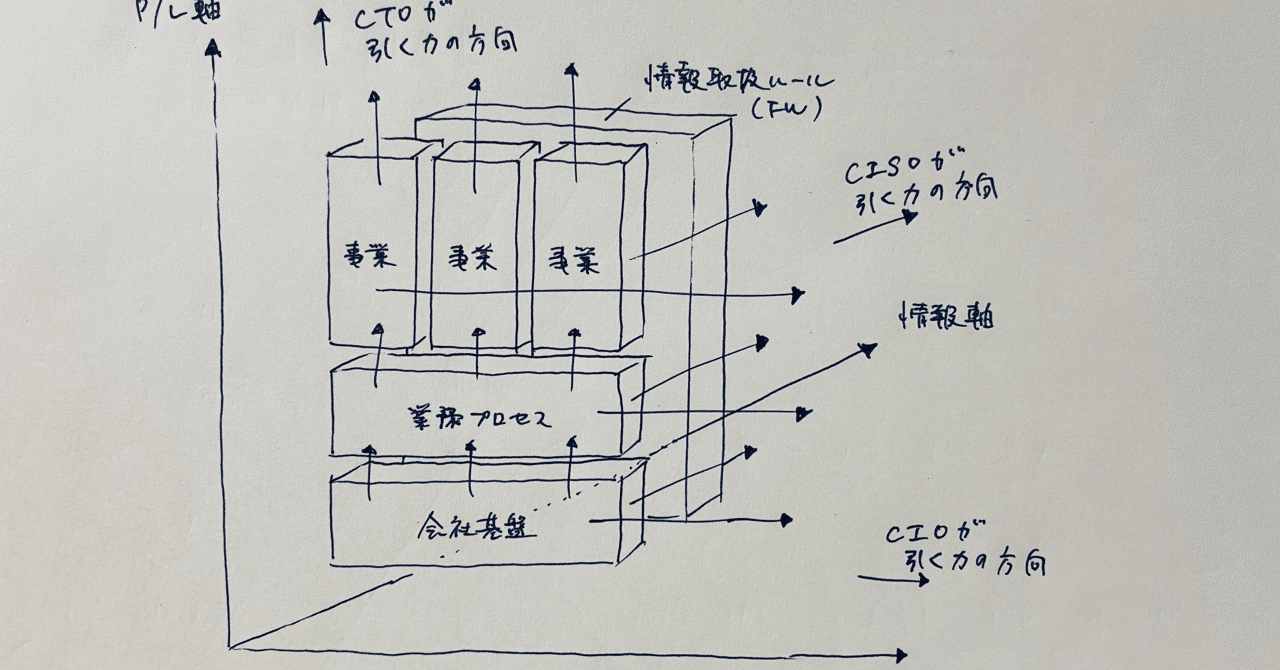 P/L軸
CTOが
引く力の方向
情報取扱ルール
(FW)
CISOが
引く力の方向
事業
事業
事業
情報軸
業務プロセス
会社基盤
CIOが
引く力の方向